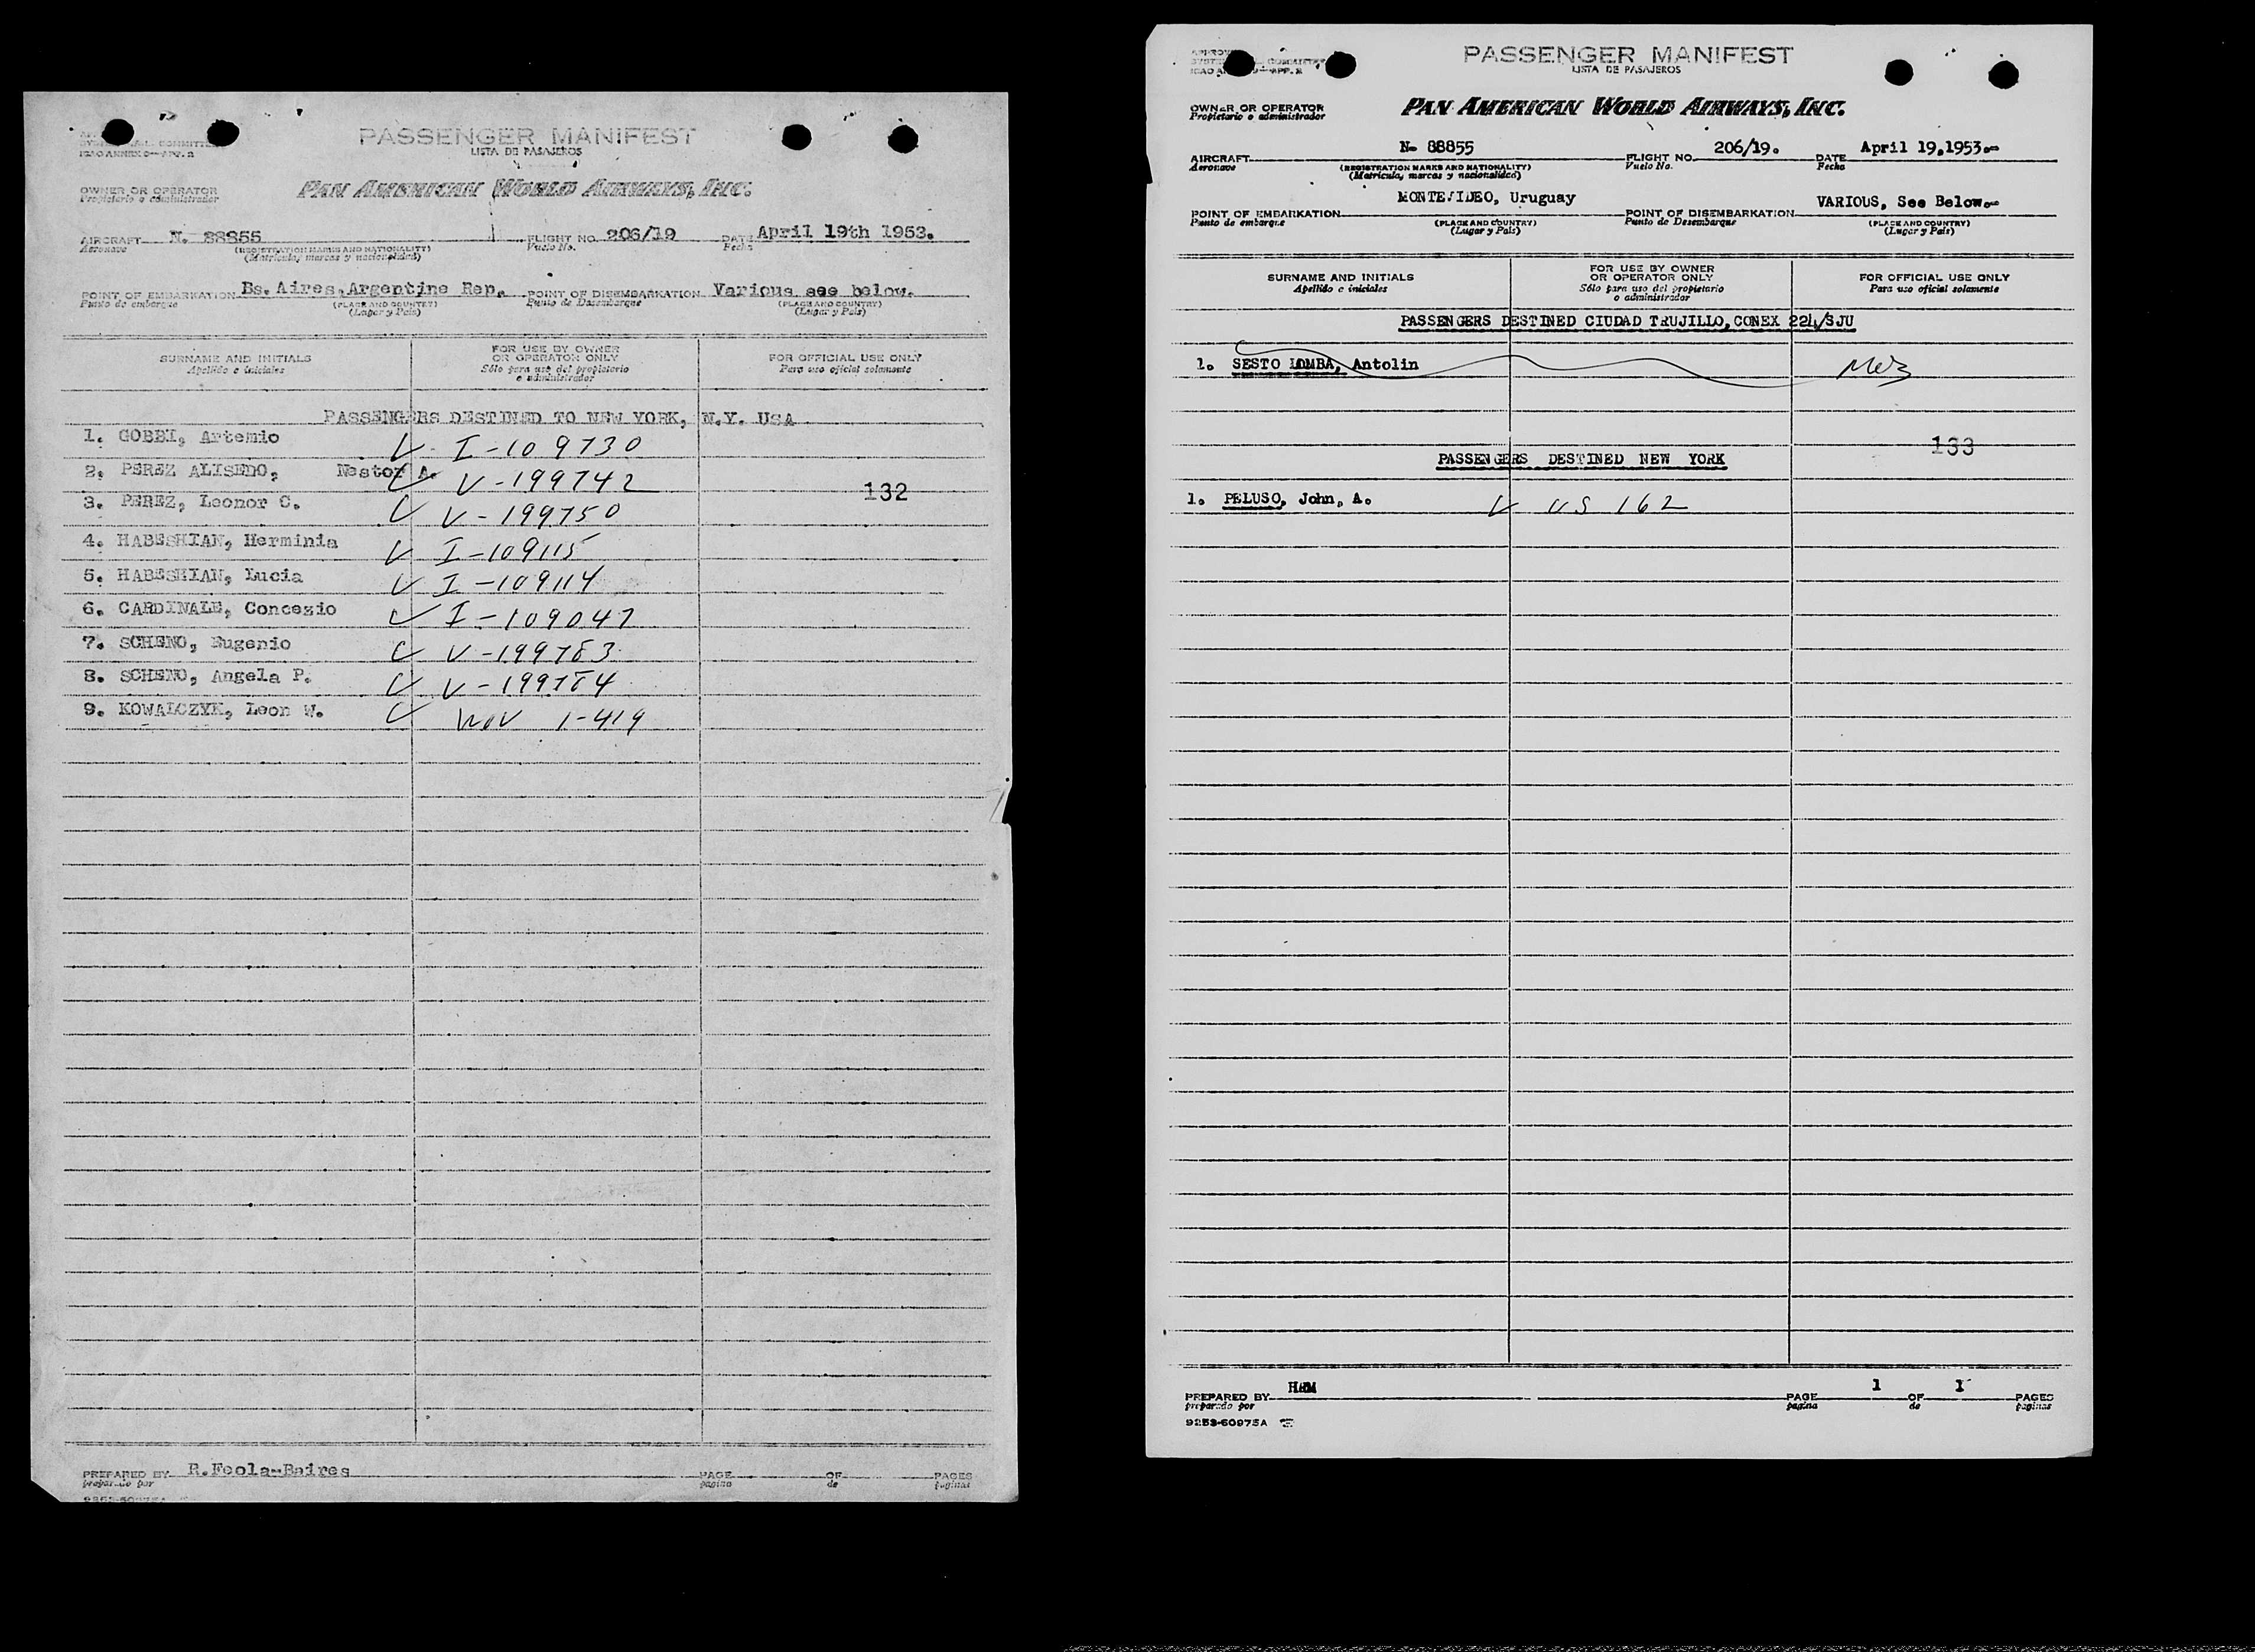 PASSENGER MANIFEST
LISTA DE PASAJEROS
ICAO ANNEX 9—APP. 2
OWNER OR OPERATOR
Propietario o administrador
PAN AMERICAN WORLD AIRWAYS, INC.
AIRCRAFT N. 88855 FLIGHT NO. 206/19 DATE April 19th 1953.
Aeronave (REGISTRATION MARKS AND NATIONALITY) Vuelo No. Fecha
(Matricula, marcas y nacionalidad)
POINT OF EMBARKATION Bs. Aires, Argentine Rep. POINT OF DISEMBARKATION Various see below.
Punto de embarque (PLACE AND COUNTRY) Punto de Desembarque (PLACE AND COUNTRY)
(Lugar y País) (Lugar y País)
SURNAME AND INITIALS FOR USE BY OWNER OR OPERATOR ONLY FOR OFFICIAL USE ONLY
Apellido e iniciales Sólo para uso del propietario o administrador Para uso oficial solamente
PASSENGERS DESTINED TO NEW YORK, N.Y. USA
1. GOBBI, Artemio ✓ I-109730
2. PEREZ ALISEDO, Nestor A. ✓ V-199742
132
3. PEREZ, Leonor C. ✓ V-199750
4. HABESHIAN, Herminia ✓ I-109115
5. HABESHIAN, Lucia ✓ I-109114
6. CARDINALE, Concezio ✓ I-109047
7. SCHENO, Eugenio ✓ V-199783
8. SCHENO, Angela P. ✓ V-199784
9. KOWALCZYK, Leon W. ✓ 1-419
PREPARED BY R.Feola-Baires PAGE OF PAGES
preparado por pagina de paginas
PASSENGER MANIFEST
LISTA DE PASAJEROS
OWNER OR OPERATOR
Propietario o administrador
PAN AMERICAN WORLD AIRWAYS, INC.
AIRCRAFT N- 88855 FLIGHT NO. 206/19. DATE April 19,1953.-
Aeronave (REGISTRATION MARKS AND NATIONALITY) Vuelo No. Fecha
(Matricula, marcas y nacionalidad)
POINT OF EMBARKATION MONTEVIDEO, Uruguay POINT OF DISEMBARKATION VARIOUS, See Below.-
Punto de embarque (PLACE AND COUNTRY) Punto de Desembarque (PLACE AND COUNTRY)
(Lugar y País) (Lugar y País)
SURNAME AND INITIALS FOR USE BY OWNER OR OPERATOR ONLY FOR OFFICIAL USE ONLY
Apellido e iniciales Sólo para uso del propietario o administrador Para uso oficial solamente
PASSENGERS DESTINED CIUDAD TRUJILLO, CONEX 224/SJU
1. SESTO LOMBA, Antolin
133
PASSENGERS DESTINED NEW YORK
1. PELUSO, John, A. ✓ US 162
PREPARED BY PAGE 1 OF 1 PAGES
preparado por pagina de paginas
9253-60975A